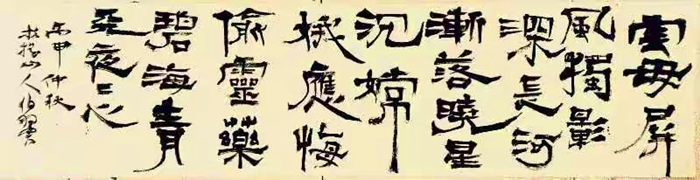 雲母屏
風獨影
深長河
漸落曉星
沉嫦
娥應悔
偷靈藥
碧海青
天夜〻心
丙申仲秋
山人伯